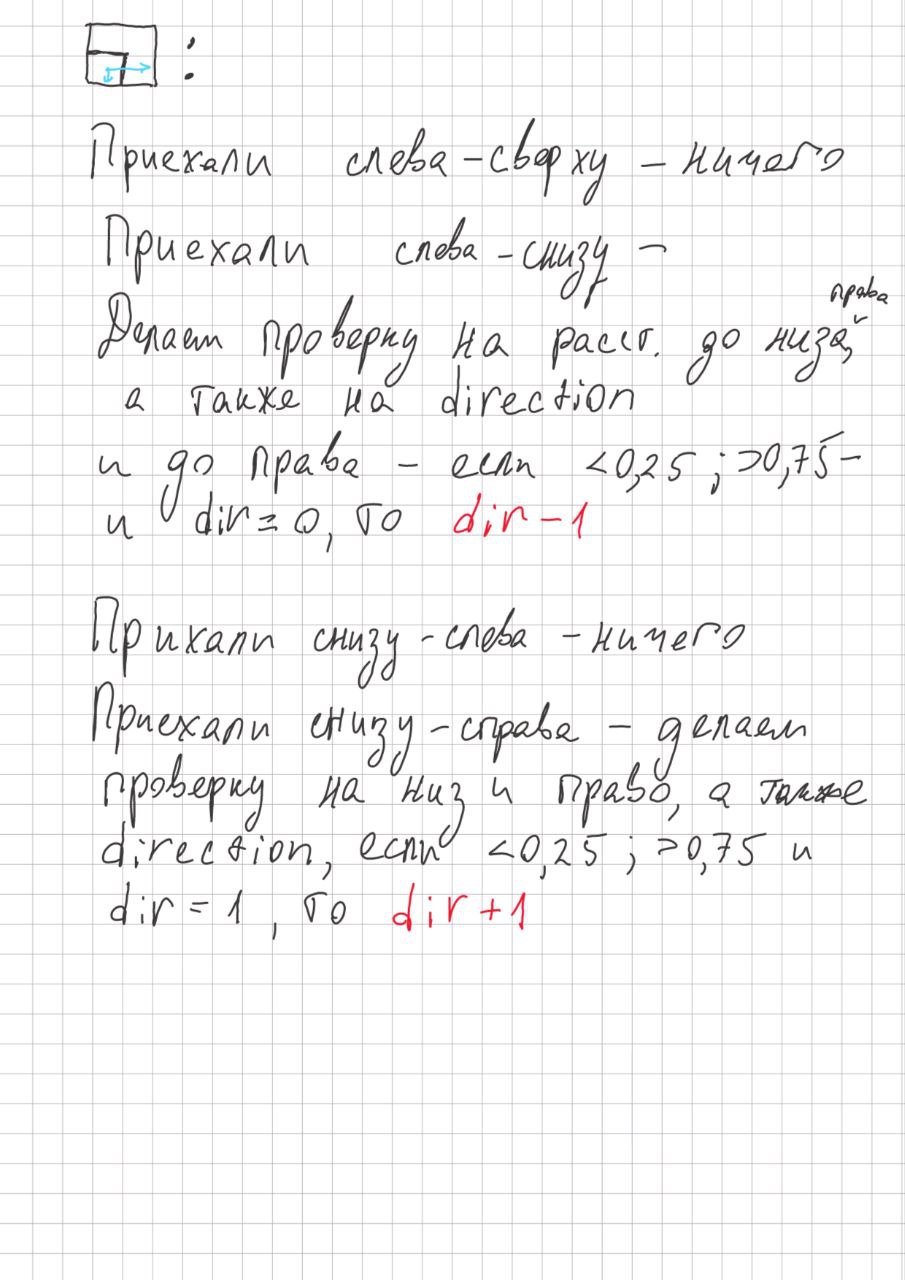 :
Приехали слева-сверху - ничего
Приехали слева-снизу -
права
Делаем проверку на расст. до низа, и
а также на direction
и до права - если <0,25 ; >0,75-
и dir=0, то dir-1
Прихали снизу-слева - ничего
Приехали снизу-справа - делаем
проверку на низ и право, а также
direction, если <0,25 ; >0,75 и
dir = 1, то dir+1